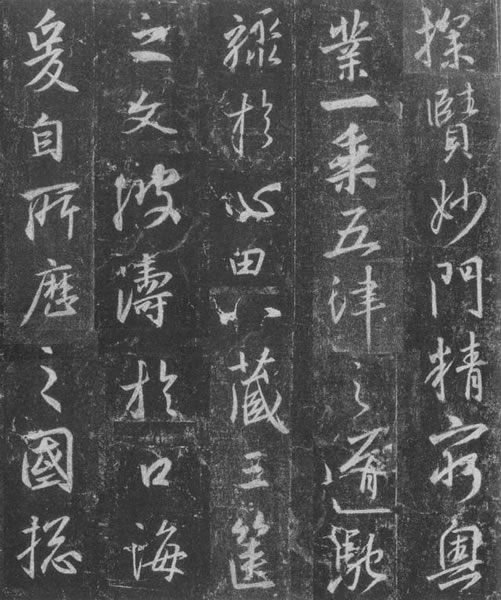 探賾妙門精窮奧
業一乘五律之道馳
驟於心田八藏三篋
之文波濤於口海
爰自所歷之國總